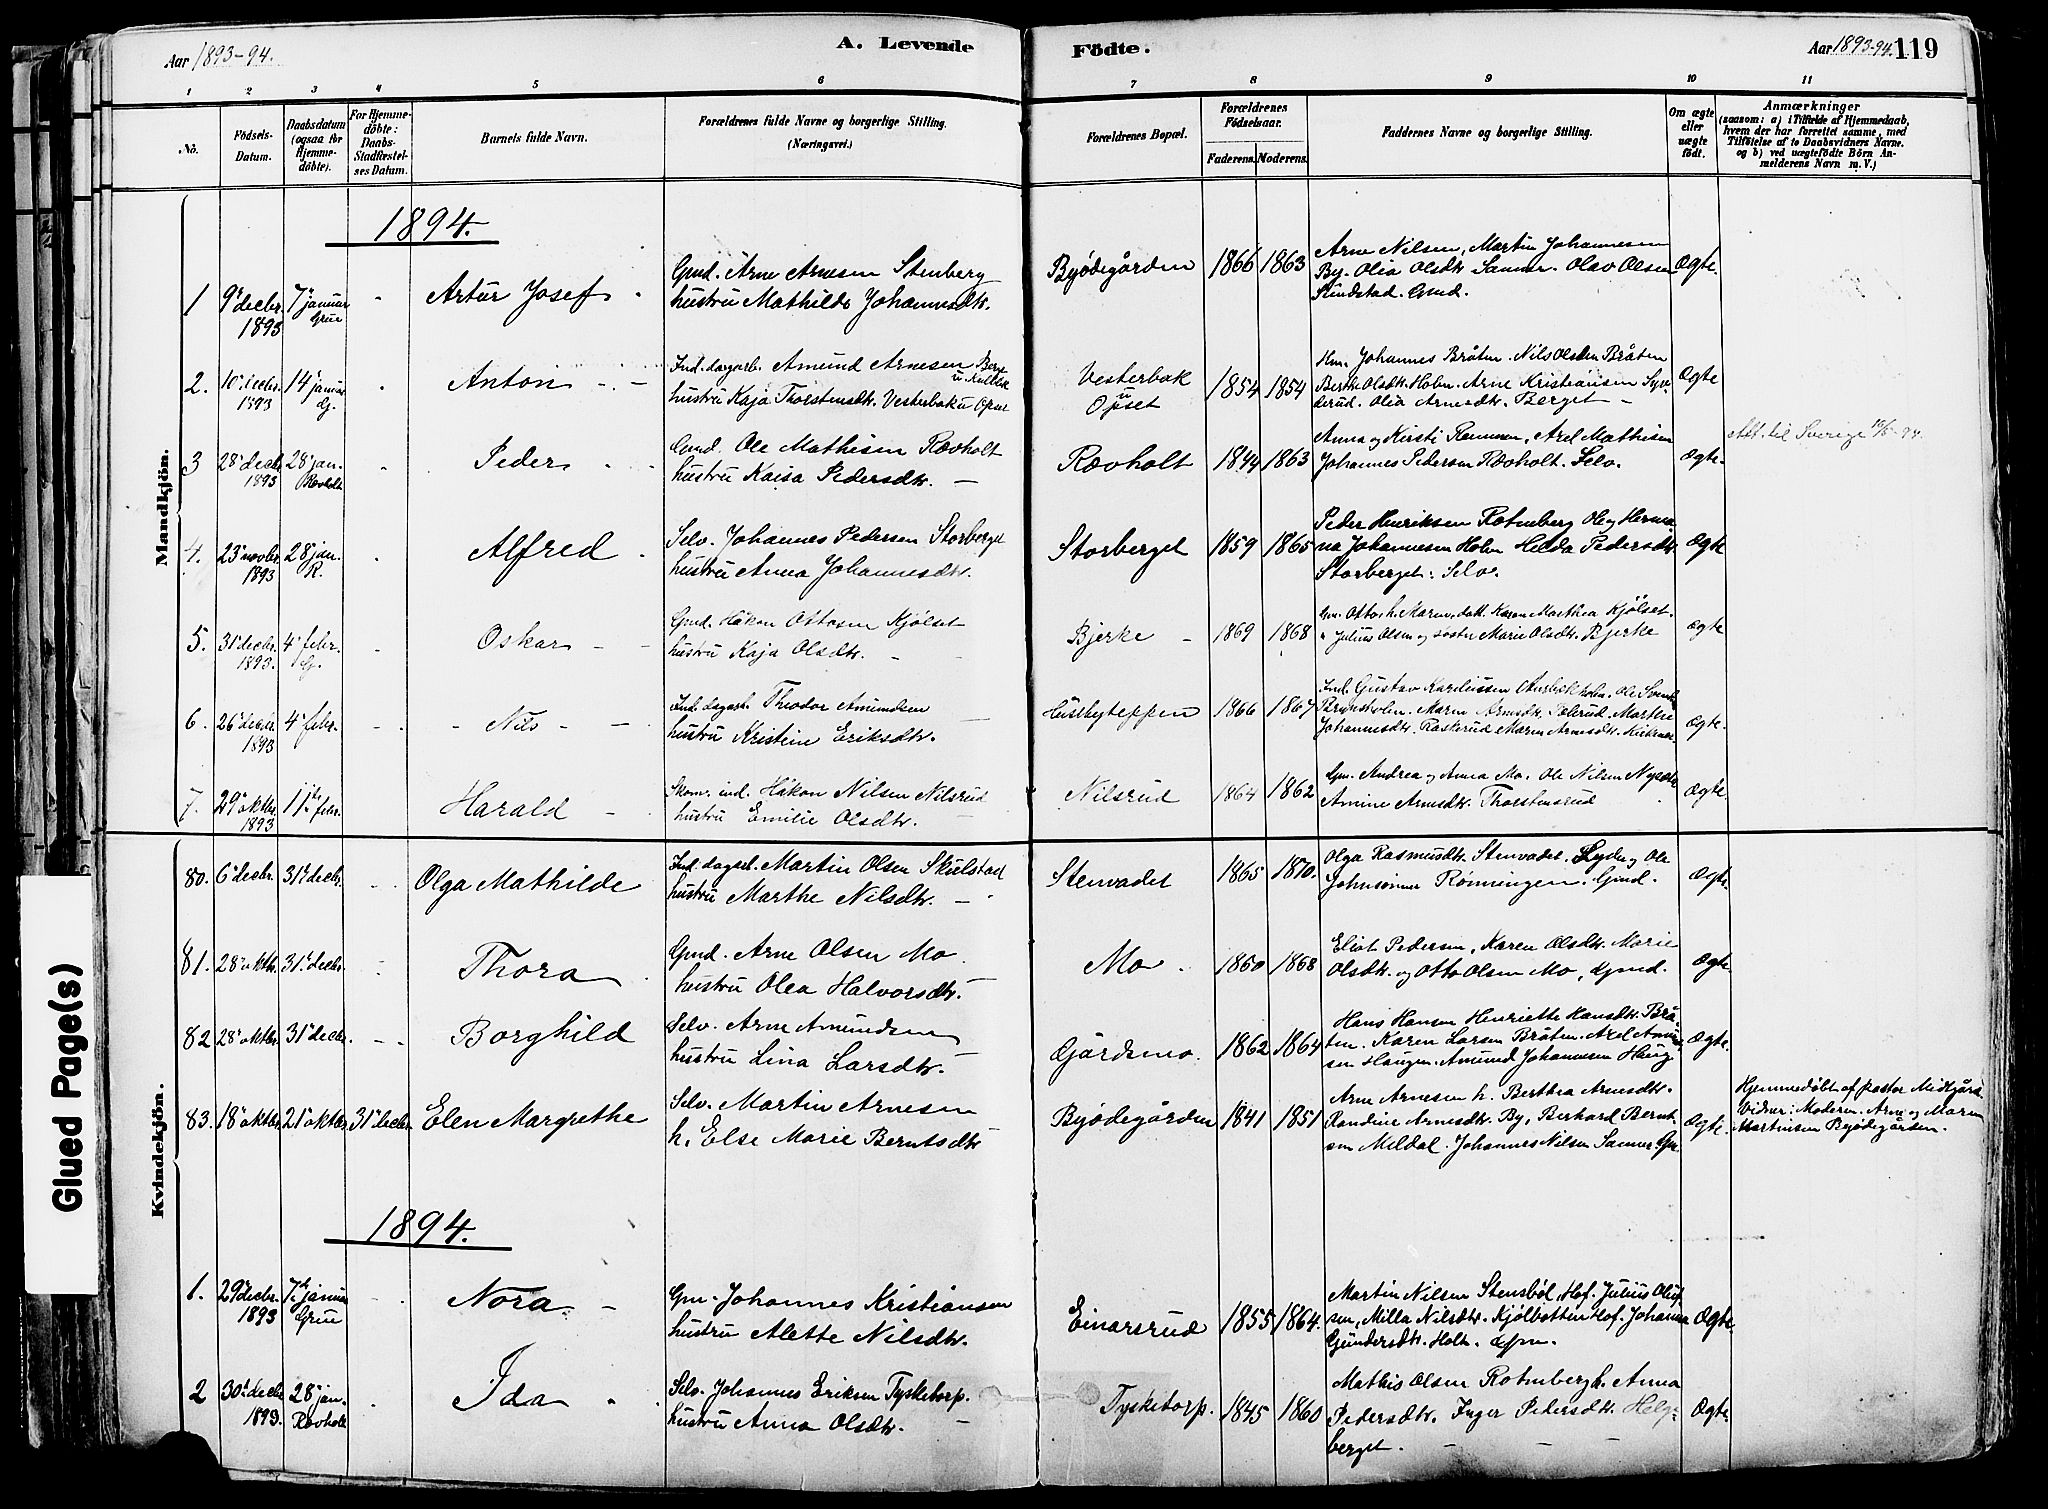 Aar 1893-94.
A. Levende
Födte.
Aar 1893-94. 119
1 2 3 4 5 6 7 8 9 10 11
No.
Födsels-Datum.
Daabsdatum (ogsaa for Hjemmedöbte).
For Hjemmedöbte: Daabs-Stadfæstelses Datum.
Barnets fulde Navn.
Forældrenes fulde Navne og borgerlige Stilling.
(Næringsvei.)
Forældrenes Bopæl.
Forældrenes Födselsaar.
Faderens. Moderens.
Faddernes Navne og borgerlige Stilling.
Om ægte eller uægte födt.
Anmærkninger
(saasom: a) i Tilfælde af Hjemmedaab, hvem der har forrettet samme, med Tilföielse af to Daabsvidners Navne. og b) ved uægtefödte Börn Anmelderens Navn m. V.)
Mandkjön.
1894.
1 9 decbr. 1893 7 januar Grue Artur Josef Gmd. Arne Arnesen Stenberg hustru Mathilde Johannesdtr. Byödegården 1866 1863 Arne Nilsen, Martin Johannesen By. Olia Olsdtr Sanner. Olav Olsen Gmd. Ægte
2. 10 decbr. 1893 14 januar G. Anton Ind. dagarb. Amund Arnesen hustru Kaja Thorstensdtr. Vesterbak u Opset Vesterbak u Opset 1854 1854 Johannes Bråten. Nils Olsen Bråten Berthe Olsdtr. Holm. Arne Kristiansen Olia Arnesdtr. Berget Ægte
3 28 decbr 1893 28 jan. Rovholt Peder Gmd. Ole Mathisen Rovholt hustru Kaisa Pedersdtr. Rovholt 1844 1863 Anna og Kirsti Axel Mathisen Johannes Pedersen Rovholt. Selv. Ægte. Att. til Sverige
4. 23 novbr. 1893 28 jan. R. Alfred Selv. Johannes Pedersen Storberget hustru Anna Johannesdtr. Storberget 1859 1865 Peder Henriksen Rotnberg Ole og Hermana Johannesen Holm Helda Pedersdtr. Storberget. Selv. Ægte
5. 31 decbr. 1893. 4 febr. G. Oskar Gmd. Håkon Ottosen Kjölset hustru Kaja Olsdtr. Bjerke 1869 1868 Gm. Otto, h. Maren, datt. Karen Marthea Kjölset. Julius Olsen og søster Marie Olsdtr. Bjerke Ægte
6. 26 decbr. 1893 4 febr. Nils Ind. dagarb. Theodor Amundsen hustru Kristine Eriksdtr. Husbyteppen 1866 1867 Ind. Gustav Maren Arnesdtr. Marthe Johannesdtr. Raskerud Maren Arnesdtr. Ægte.
7. 29 oktbr. 1893 11 febr. Harald Skom. ind. Håkon Nilsen Nilsrud hustru Emilie Olsdtr. Nilsrud 1864 1862 Gm. Andrea og Anna Mo. Ole Nilsen Amine Arnesdtr. Thorstensrud Ægte.
Kvindekjön.
80. 6 decbr. 31 decbr. Olga Mathilde Ind. dagarb. Martin Olsen Skulstad hustru Marthe Nilsdtr. Stenvadet 1865 1870. Olga Rasmusdtr. Stenvadet. Lyder og Ole Johnsönner Rönningen. Gmd. Ægte.
81. 28 oktbr. 31 decbr. Thora Gmd. Arne Olsen Mo. hustru Olea Halvorsdtr. Mo. 1860 1868 Eliot Pedersen, Karen Olsdtr. Marie Olsdtr. og Otto Olsen Mo, Gmd. Ægte.
82 28 oktbr. 31 decbr. Borghild Selv. Arne Amundsen hustru Lina Larsdtr. Gjårdsmo. 1862 1864 Hans Hansen Henriette Hansdtr. Bråten. Karen Larsen Bråten. Axel Haugen. Amund Johannesen Haug Ægte.
83. 18 oktbr. 21 oktbr. 31 decbr. Elen Margrethe Selv. Martin Arnesen h. Else Marie Berntsdtr Byödegården 1841 1851 Arne Arnesen h. Berthea Arnesdtr. Randine Arnesdtr. By, Berhard Berntsen Mildal. Johannes Nilsen Sanner Gm Ægte. Hjemmedöbt af pastor Midtgård. Vidner: Moderen. Arne og Maren Martinsen Byödegården.
1894.
1. 29 decbr. 1893 7 januar Grue Nora Gm. Johannes Kristiansen hustru Alette Nilsdtr. Einarsrud 1855 1864. Martin Nilsen Stensböl, Hof. Julius Olufsen, Milla Nilsdtr. Kjölbotten Hof. Johanna Gundersdtr. Holt. Gm. Ægte.
2 30 decbr 1893. 28 jan. Rovholt Ida Selv. Johannes Eriksen Tysketorp. hustru Anna Olsdtr. Tysketorp. 1845 1860 Mathis Olsen Rotnberg h. Anna Pedersdtr. Inger Pedersdtr. Helgeberget. Ægte.
Glued Page(s)